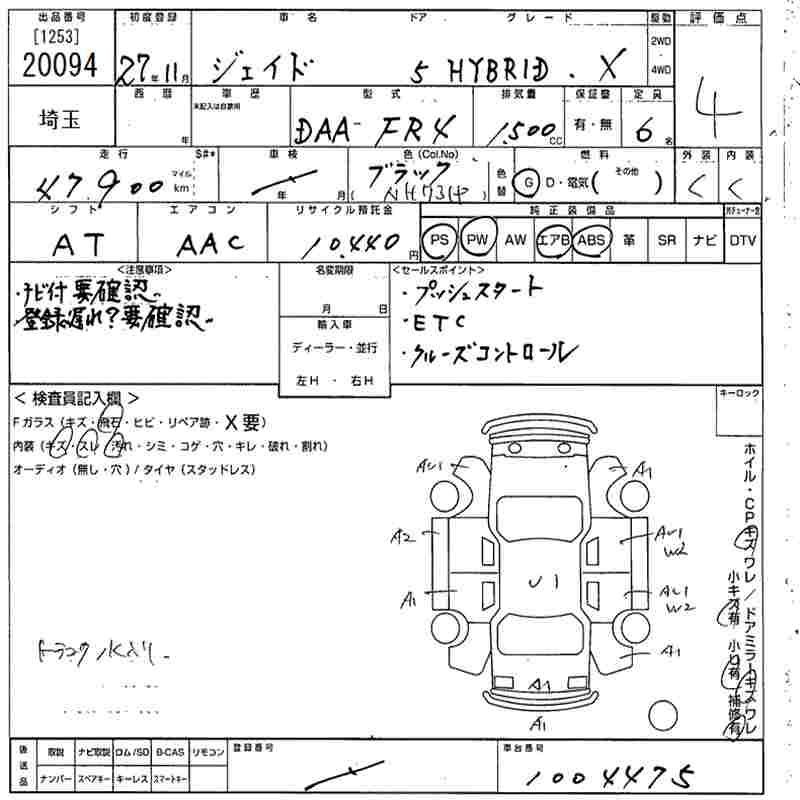 出品番号 初度登録 車名 ドア グレード 駆動 評価点
[1253]
20094 27年11月 ジェイド 5 HYBRID . X 2WD・4WD 4
埼玉 西暦 車歴 型式 排気量 保証書 定員
未記入は自家用
年 DAA-FR4 1,500cc 有・無 6名
走行 S#* 車検 色(Col.No) 燃料 外装 内装
47,900 マイル km 年 月 ブラック (NH731P) 色替 G D・電気( その他 ) C C
シフト エアコン リサイクル預託金 純正装備品
AT AAC 10,440円 PS PW AW エアB ABS 革 SR ナビ DTV
<注意事項> 名変期限 <セールスポイント>
・ナビ付要確認
登録遅れ?要確認
月 日
輸入車
ディーラー・並行
左H ・ 右H
・プッシュスタート
・ETC
・クルーズコントロール
<検査員記入欄> キーロック
Fガラス(キズ・飛石・ヒビ・リペア跡・X要)
内装(キズ・スレ・汚れ・シミ・コゲ・穴・キレ・破れ・割れ)
オーディオ(無し・穴)/タイヤ(スタッドレス)
AU1 A1
A2 AU1
W2
U1
A1 AU1
W2
A1
A1
A1
トランク
ホイル・CPキズワレ/ドアミラーキズワレ
小キズ有 小凹有 補修有
後送品 取説 ナビ取説 ロム/SD B-CAS リモコン 登録番号 車台番号
ナンバー スペアキー キーレス スマートキー 1004475